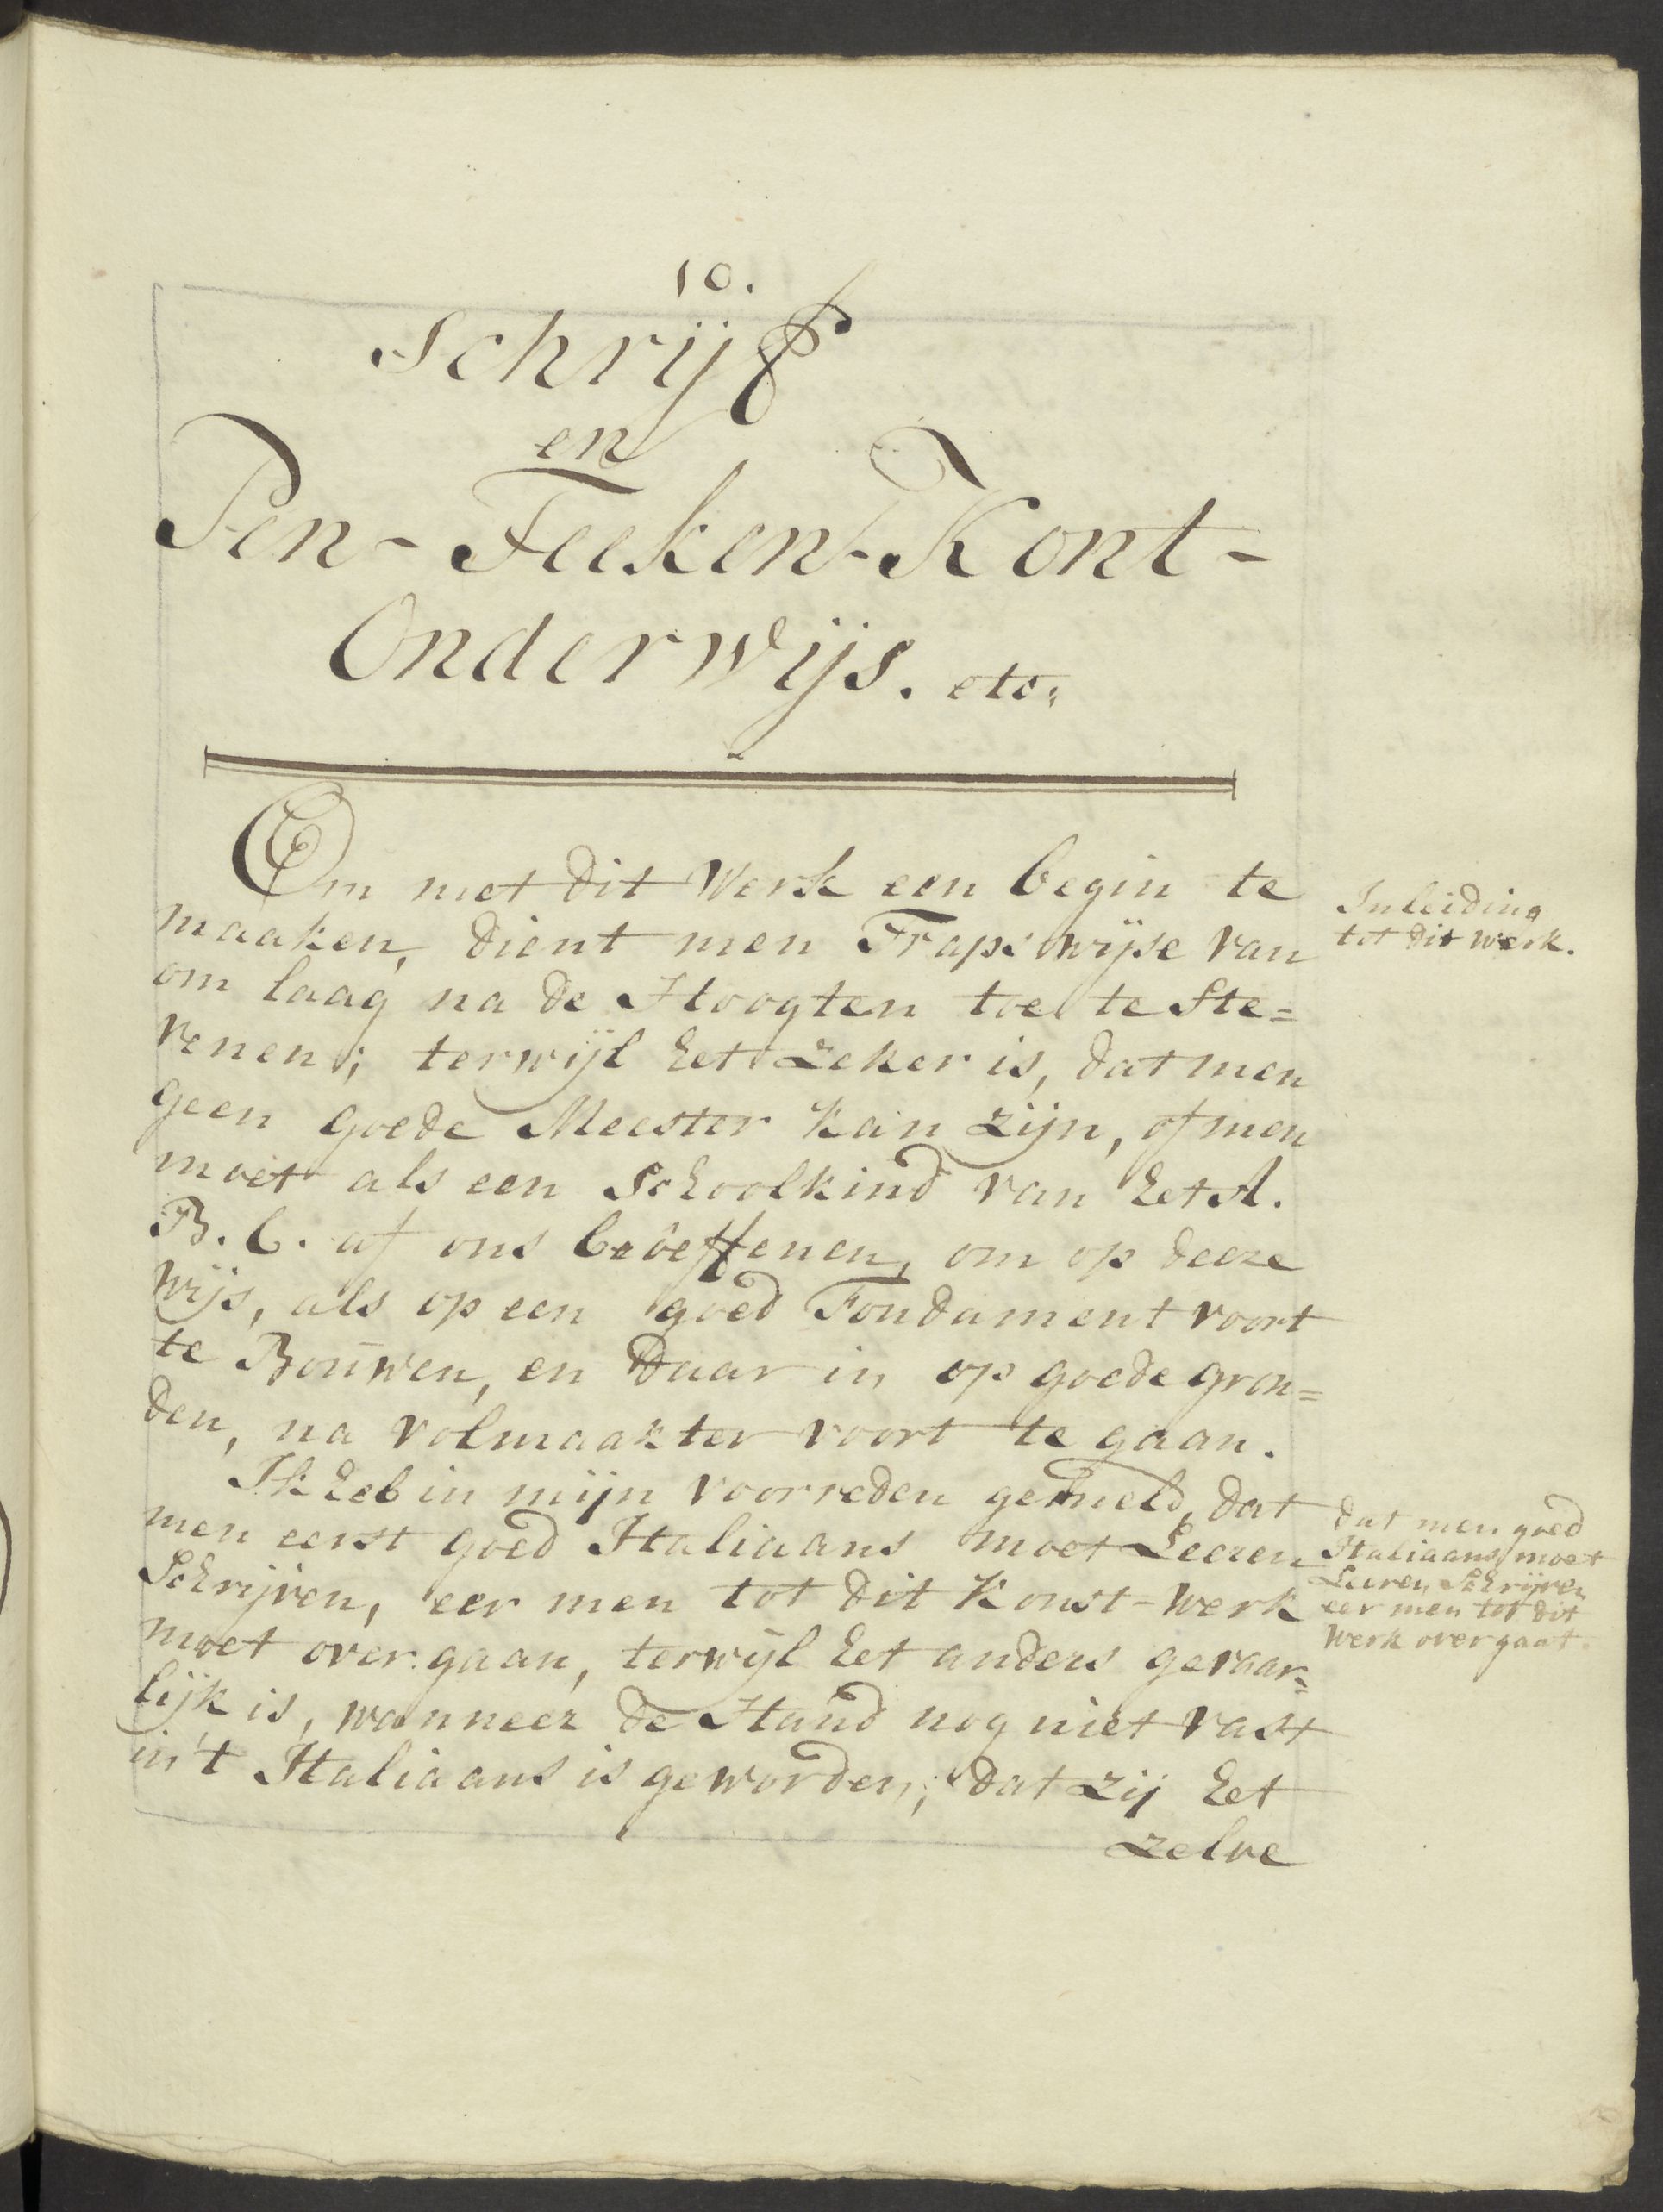 10.
Schrijf
en
Pen-Teeken-Konst-
Onderwijs. etc.
Om met dit Werk een begin te
maaken, dient men Trapswijse van
om laag na de Hoogten toe te Ste=
venen; terwijl het zeker is, dat men
geen goede Meester kan zijn, of men
moet als een Schoolkind van het A.
B. C. af ons beoeffenen, om op deeze
Wijs, als op een goed Fondament voort
te Bouwen, en daar in op goede gron=
den, na volmaakter voort te gaan.
Ik heb in mijn voorreden gemeld, dat
men eerst goed Italiaans moet Leeren
Schrijven, eer men tot dit Konst-Werk
moet over gaan, terwijl het anders gevaar=
lijk is, wanneer de Hand nog niet vast
in 't Italiaans is geworden; dat zij het
zelve
Inleiding
tot dit werk.
dat men goed
Italiaans moet
Leeren Schrijven
eer men tot dit
Werk over gaat.